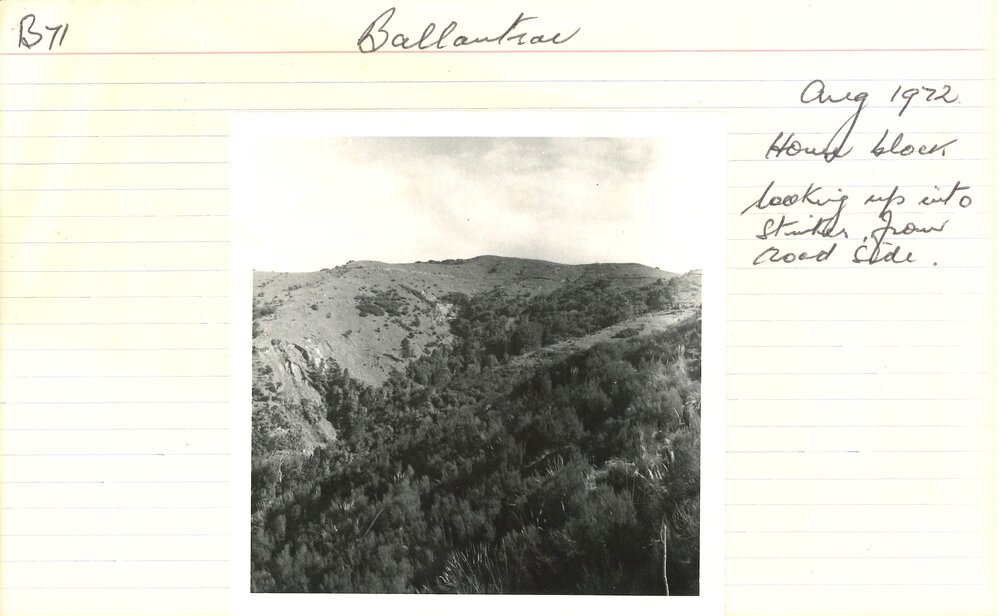 B71
Ballantrae
Aug 1972
House block
looking up into
Stinker, from
road side.